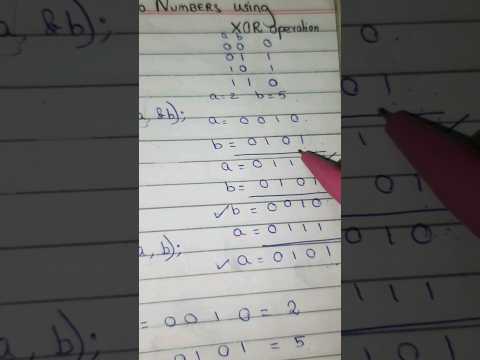 Numbers using
XOR operation
a b
0 0 0
0 1 1
1 0 1
1 1 0
a=2 b=5
a, &b);
a = 0 0 1 0
b = 0 1 0 1
a = 0 1 1
b = 0 1 0 1
✓ b = 0 0 1 0
a = 0 1 1 1
a, b);
✓ a = 0 1 0 1
= 0 0 1 0 = 2
0 1 0 1 = 5
a, &b);
a, b);
0
0 1
1
0 1
0 1 0
1 1 1